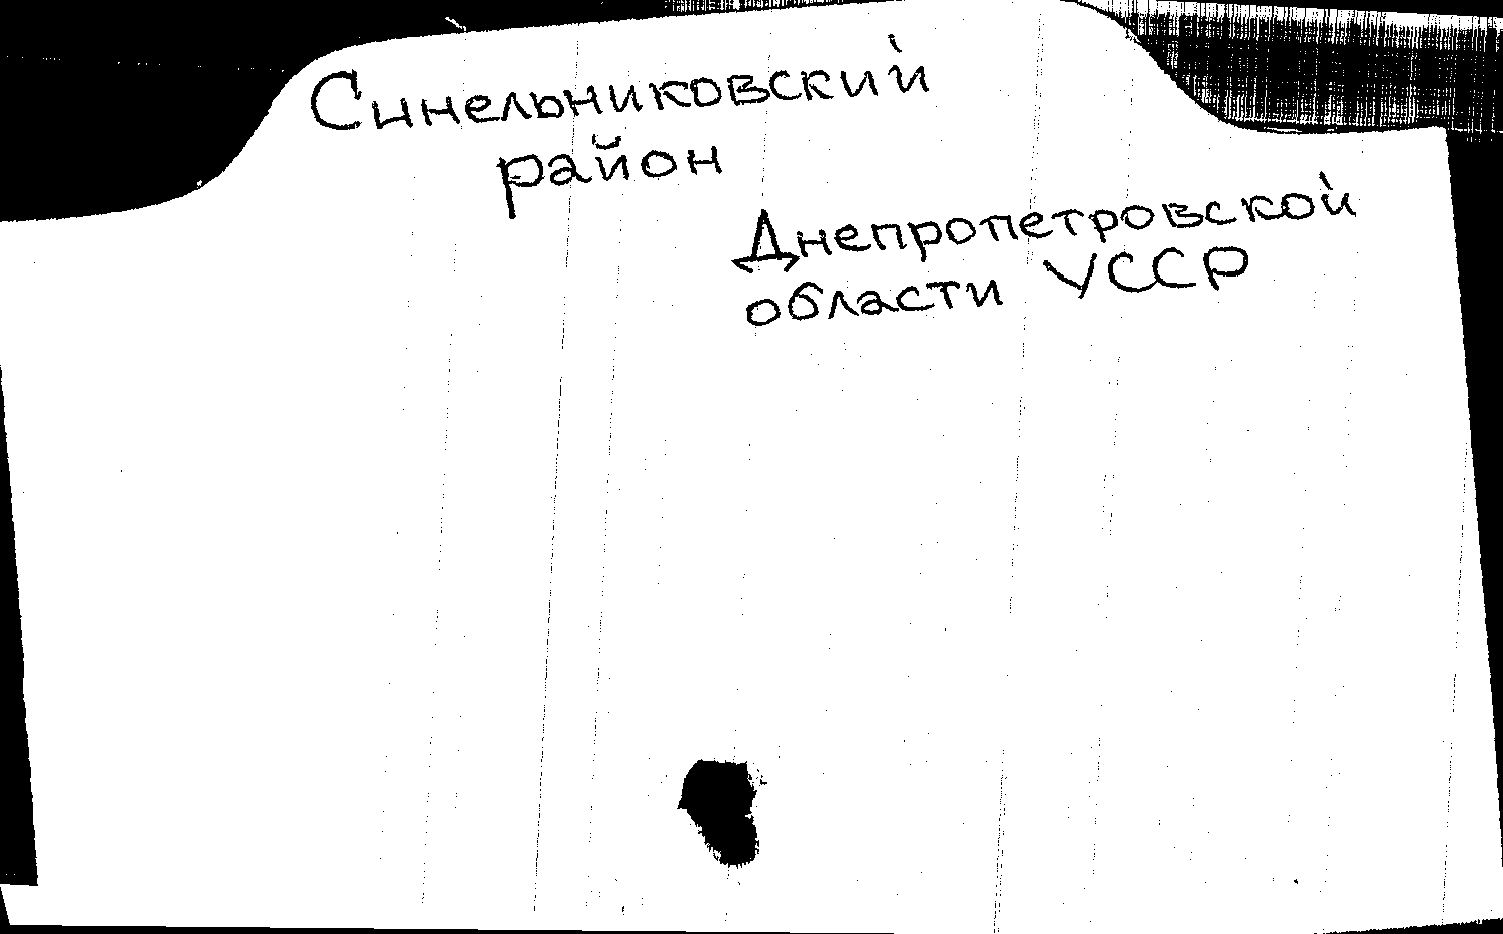 Синельниковский
район
Днепропетровской
области УССР